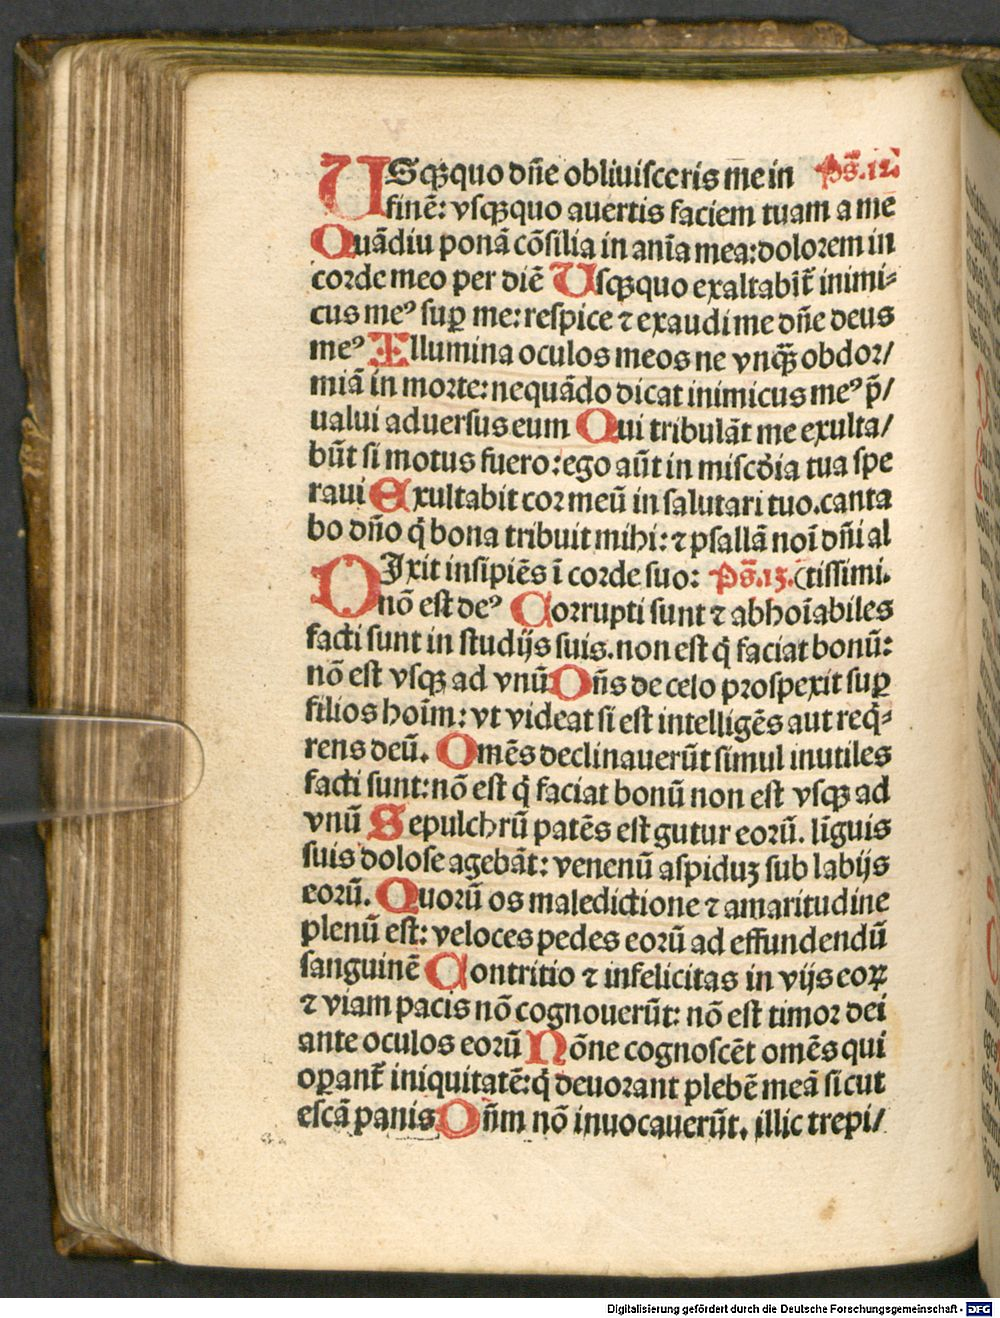 USqꝫquo dn̄e obliuisceris me in Ps̄.12.
finē: vsqꝫquo auertis faciem tuam a me
Quādiu ponā cōsilia in ani̅a mea: dolorem in
corde meo per diē Usqꝫquo exaltabit̄ inimi⸗
cus meꝰ suꝑ me: respice ⁊ exaudi me dn̄e deus
meꝰ Illumina oculos meos ne vnqꝫ̄ obdor/
miā in morte: nequādo dicat inimicus meꝰ p̄/
ualui aduersus eum Qui tribulāt me exulta/
būt si motus fuero: ego aūt in misc̄dia tua spe
raui Exultabit cor meū in salutari tuo. canta
bo dn̄o q̇ bona tribuit mihi: ⁊ psallā noī dn̄i al
DIxit insipiēs ī corde suo: Ps̄.13. (tissimi.
nō est deꝰ Corrupti sunt ⁊ abhoīabiles
facti sunt in studijs suis. non est q̇ faciat bonū:
nō est vsqꝫ ad vnū Dn̄s de celo prospexit suꝑ
filios hoīm: vt videat si est intelligēs aut req̇⸗
rens deū. Omēs declinauerūt simul inutiles
facti sunt: nō est q̇ faciat bonū non est vsqꝫ ad
vnū Sepulchrū patēs est gutur eorū. linguis
suis dolose agebāt: venenū aspiduꝫ sub labijs
eorū. Quorū os maledictione ⁊ amaritudine
plenū est: veloces pedes eorū ad effundendū
sanguinē Contritio ⁊ infelicitas in vijs eoꝝ
⁊ viam pacis nō cognouerūt: nō est timor dei
ante oculos eorū Nōne cognoscēt omēs qui
operant̄ iniquitatē: q̇ deuorant plebē meā sicut
escā panis Dn̄m nō inuocauerūt. illic trepi/
Digitalisierung gefördert durch die Deutsche Forschungsgemeinschaft - DFG